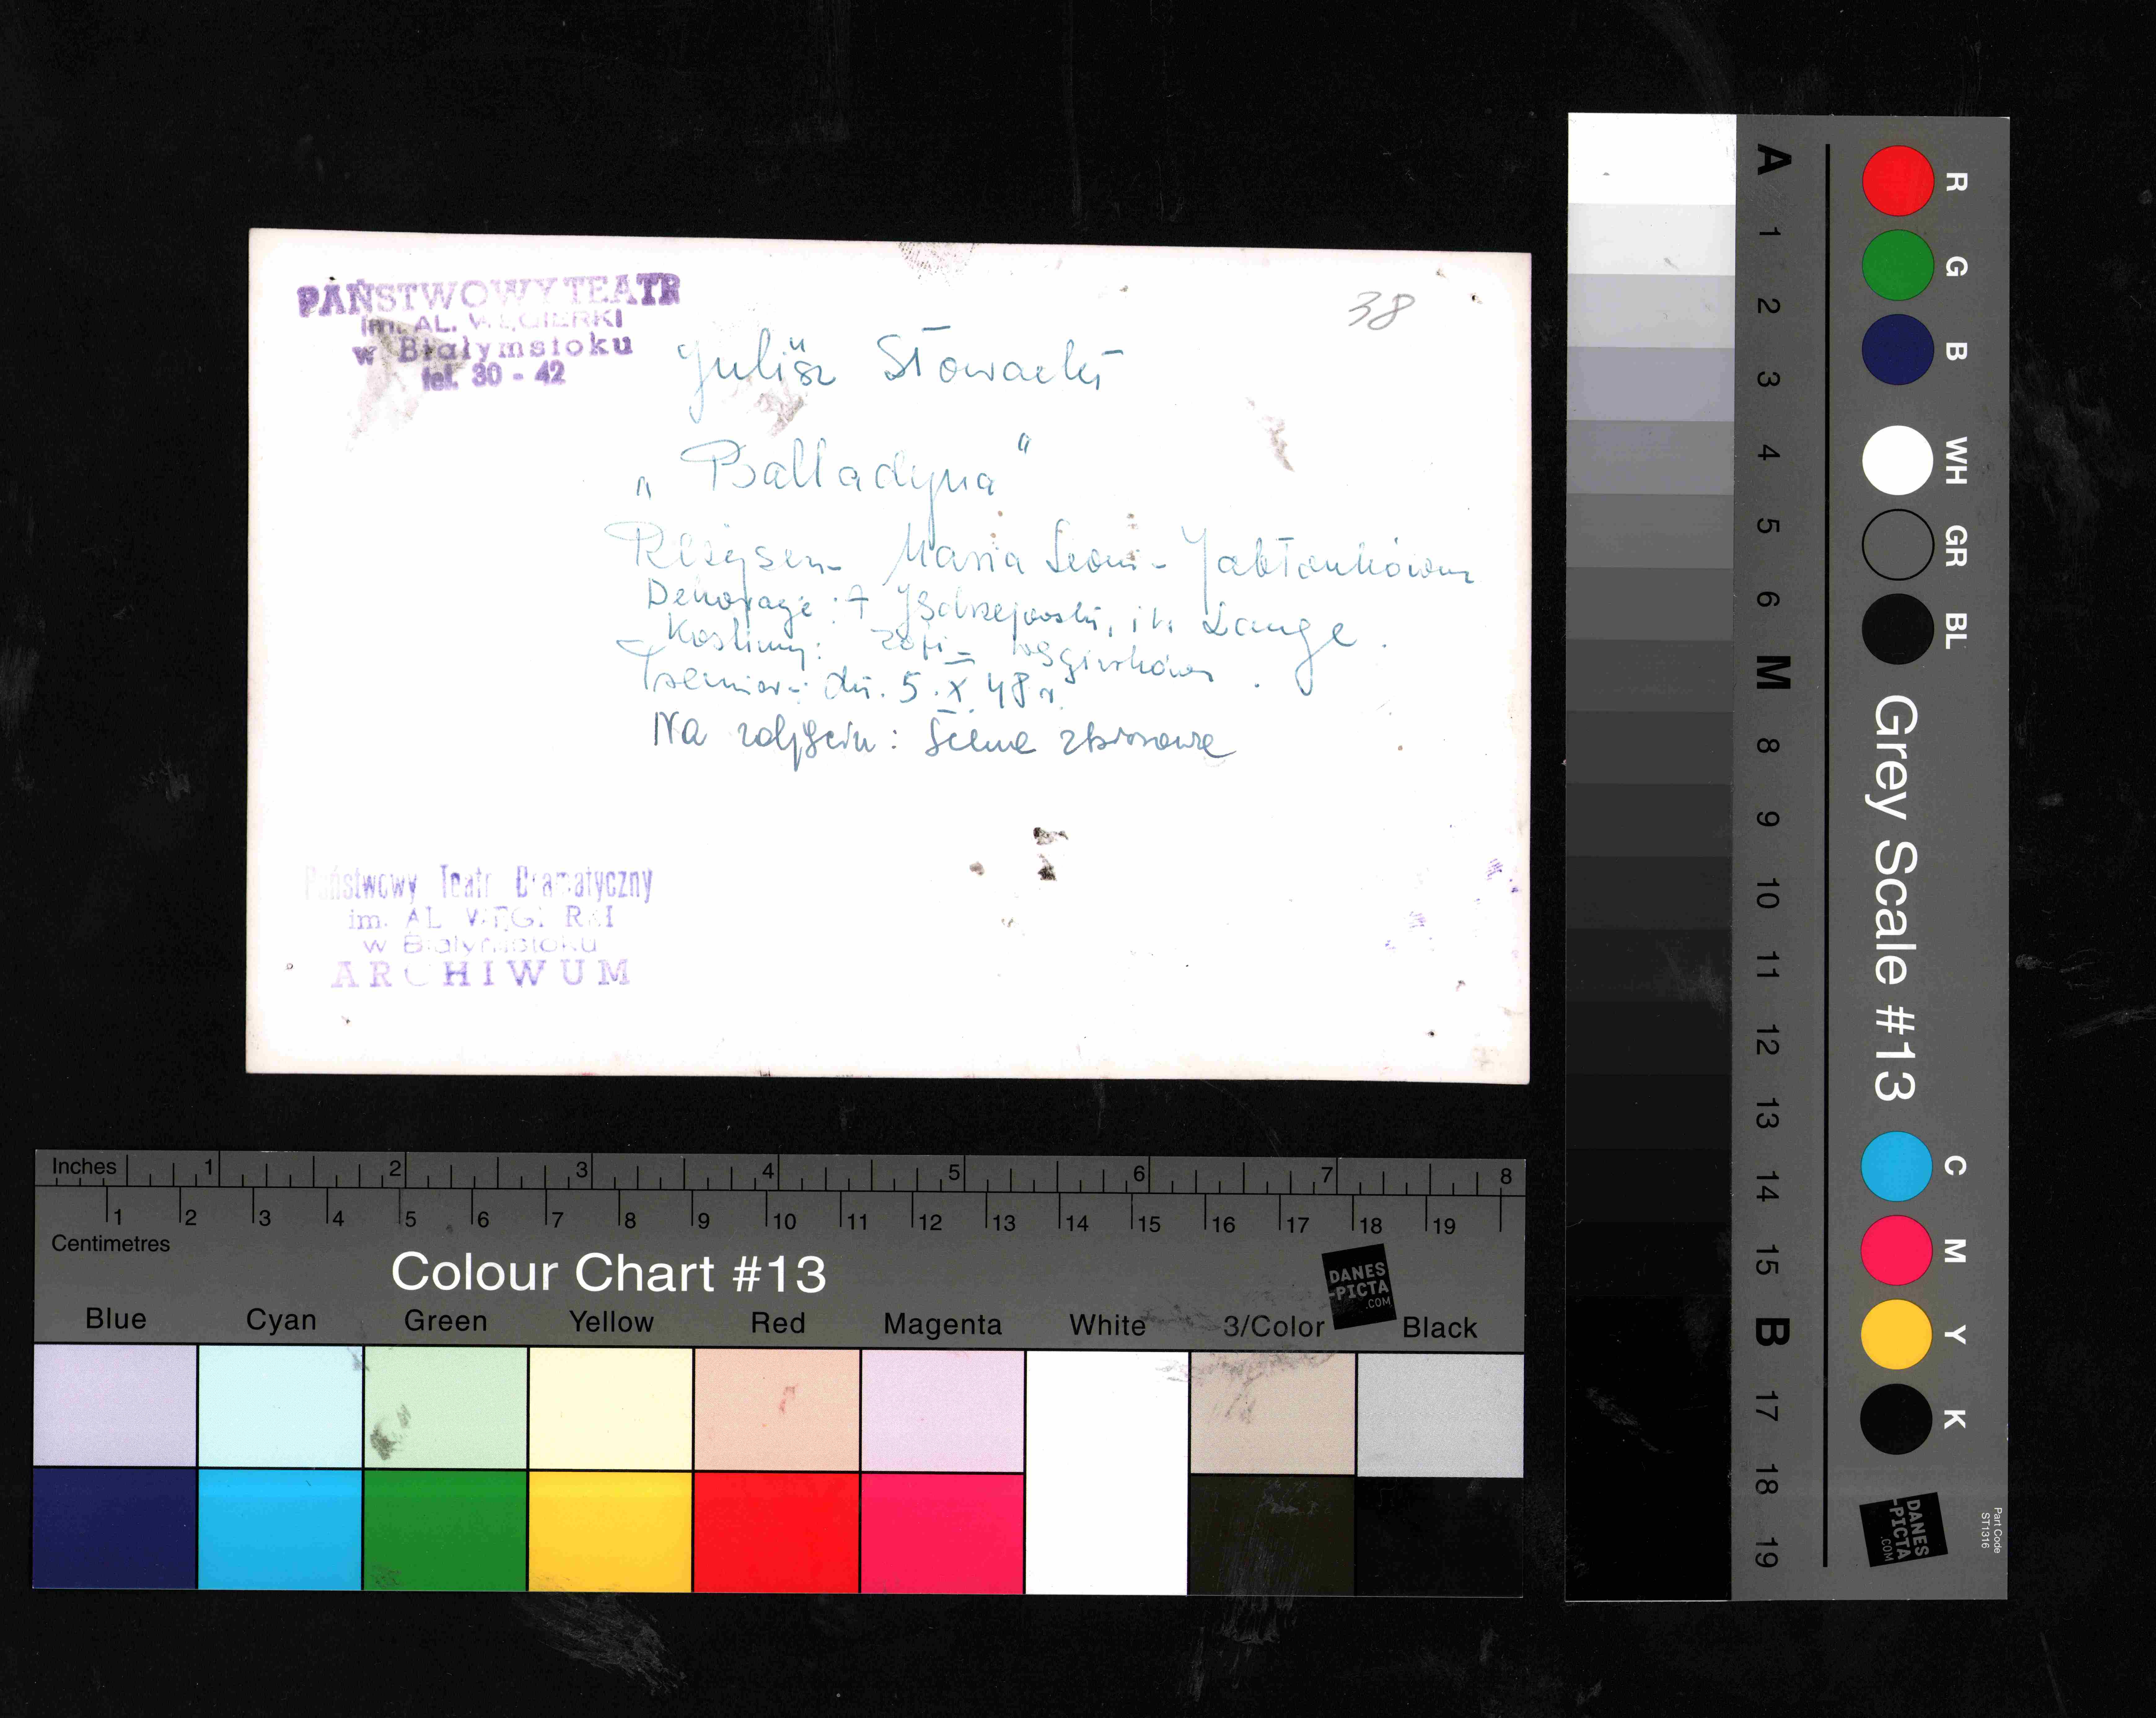 PAŃSTWOWY TEATR
im. AL. WĘGIERKI
w Białymstoku
tel. 30 - 42
38
Juliusz Słowacki
„Balladyna"
Reżyser - Maria Leoni - Jabłonkówna
Dekoracje : Jędrzejewski, i Lange
Kostiumy: Zofia Węgierkowa
Premiera: dn. 5.X.48 r.
Na zdjęciu: Scena zbiorowa
Państwowy Teatr Dramatyczny
im. AL WĘGIERKI
w Białymstoku
ARCHIWUM
Inches 1 2 3 4 5 6 7 8
1 2 3 4 5 6 7 8 9 10 11 12 13 14 15 16 17 18 19
Centimetres
Colour Chart #13
DANES
-PICTA
.COM
Blue Cyan Green Yellow Red Magenta White 3/Color Black
A 1 2 3 4 5 6 M 8 9 10 11 12 13 14 15 B 17 18 19
R G B WH GR BL
Grey Scale #13
C M Y K
DANES
-PICTA
.COM
Part Code
ST1316